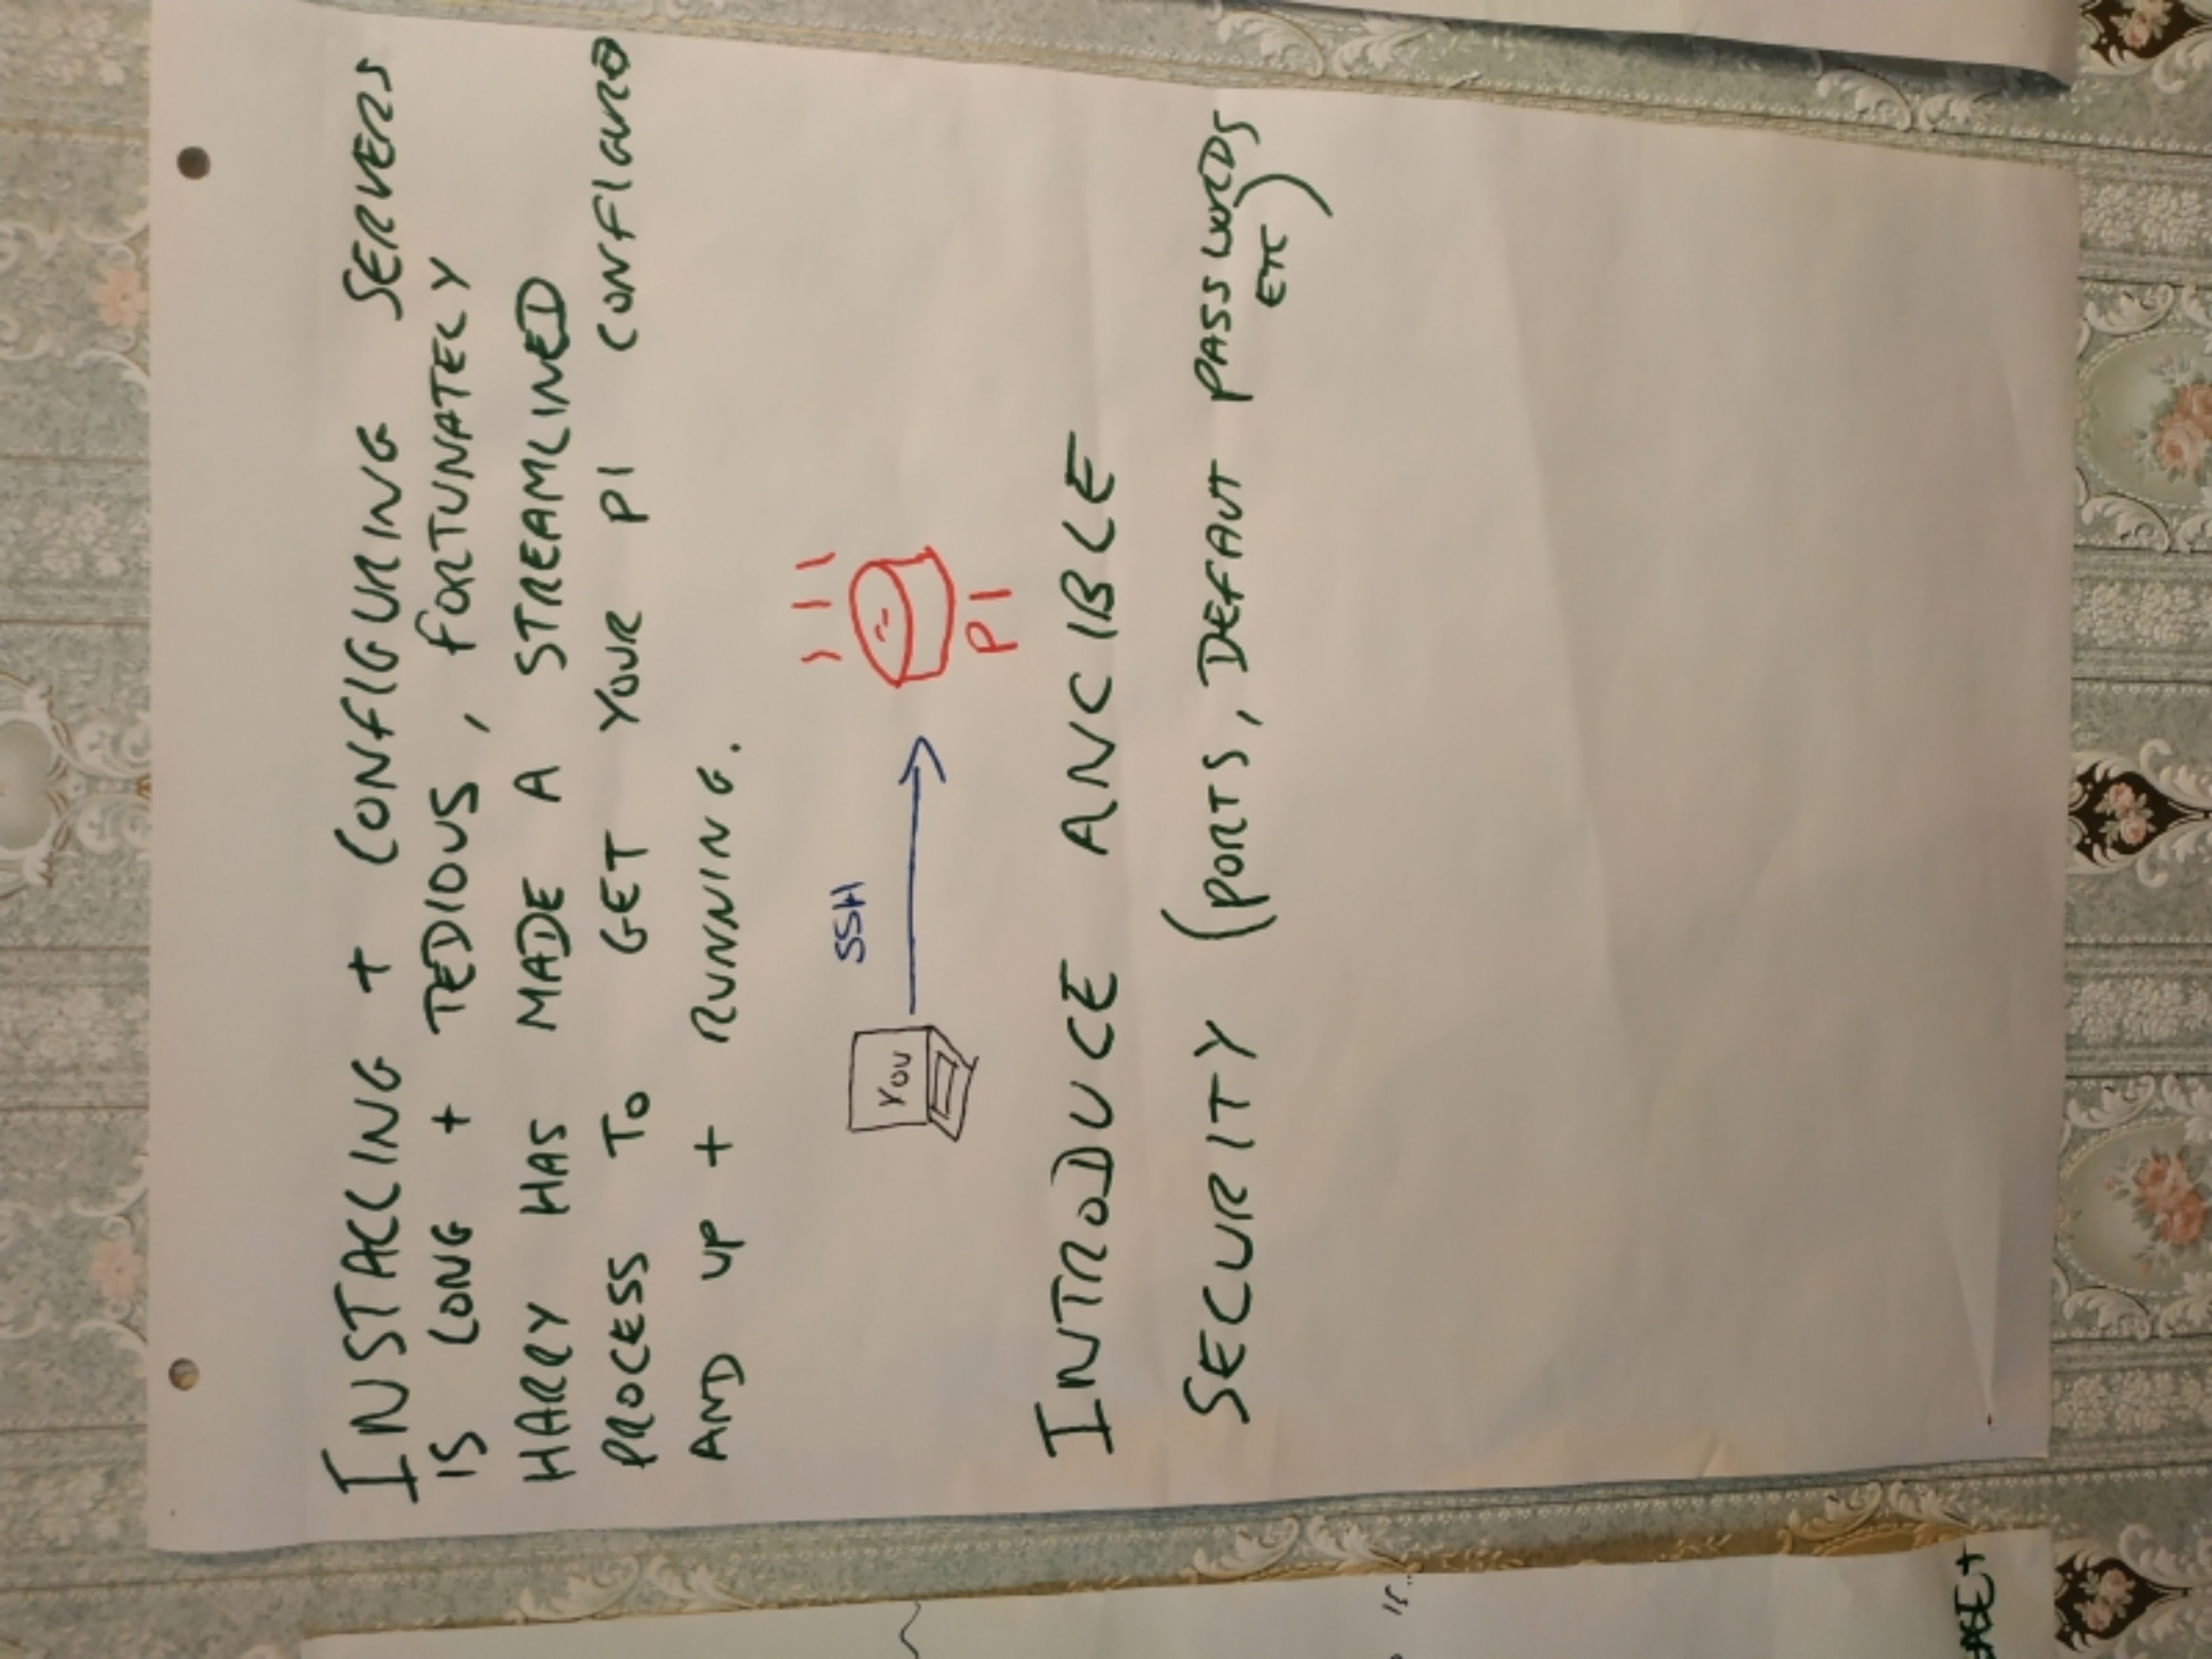 INSTALLING + CONFIGURING SERVERS
IS LONG + TEDIOUS, FORTUNATELY
HARRY HAS MADE A STREAMLINED
PROCESS TO GET YOUR PI CONFIGURED
AND UP + RUNNING.
SSH
YOU
PI
INTRODUCE ANCIBLE
SECURITY (PORTS, DEFAUT PASSWORDS
ETC)
IS..
EASE+